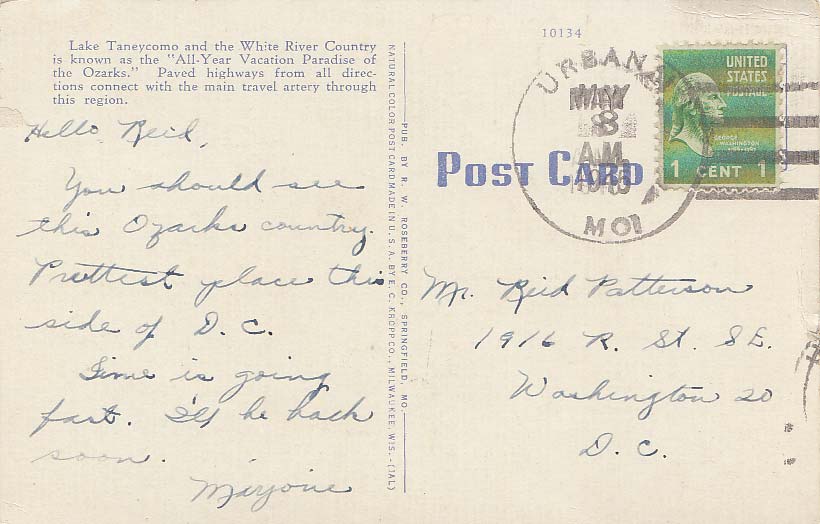 Lake Taneycomo and the White River Country
is known as the "All-Year Vacation Paradise of
the Ozarks." Paved highways from all direc-
tions connect with the main travel artery through
this region.
Hello Reid,
You should see
this Ozarks country.
Prettiest place this
side of D. C.
Time is going
fast. I'll be back
soon.
Marjorie
NATURAL COLOR POST CARD MADE IN U. S. A. BY E. C. KROPP CO., MILWAUKEE, WIS.-(JAL)
PUB. BY R. W. ROSEBERRY CO., SPRINGFIELD, MO.
10134
POST CARD
URBANA
MAY
8
A.M.
MO
UNITED
STATES
POSTAGE
GEORGE
WASHINGTON
1 CENT 1
Mr. Reid Patterson
1916 R. St. S E.
Washington 20
D. C.